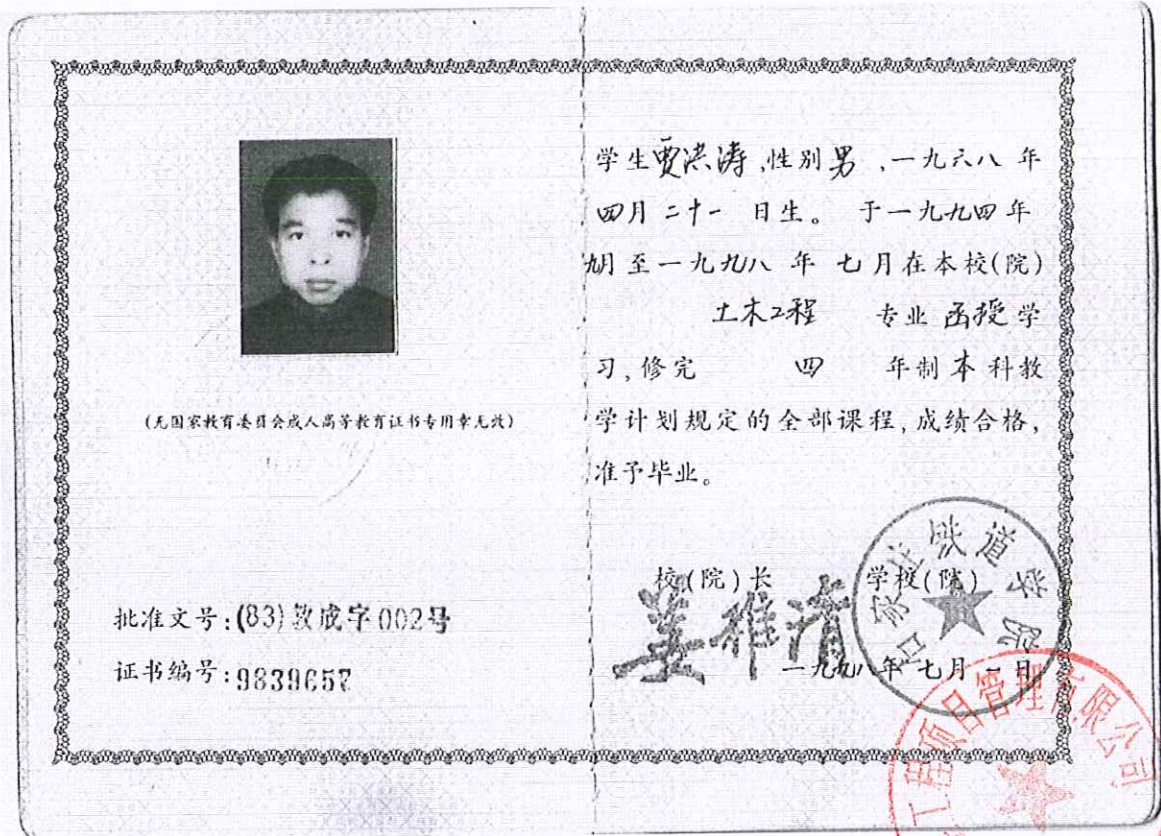 (无国家教育委员会成人高等教育证书专用章无效)
批准文号:(83)教成字002号
证书编号:9839657
学生贾洪涛,性别男,一九六八年
四月二十一日生。于一九九四年
九月至一九九八年七月在本校(院)
土木工程 专业函授学
习,修完 四 年制本科教
学计划规定的全部课程,成绩合格,
准予毕业。
校(院)长 学校(院)
姜维清
一九九八年七月一日
石家庄铁道学院
工程项目管理有限公司